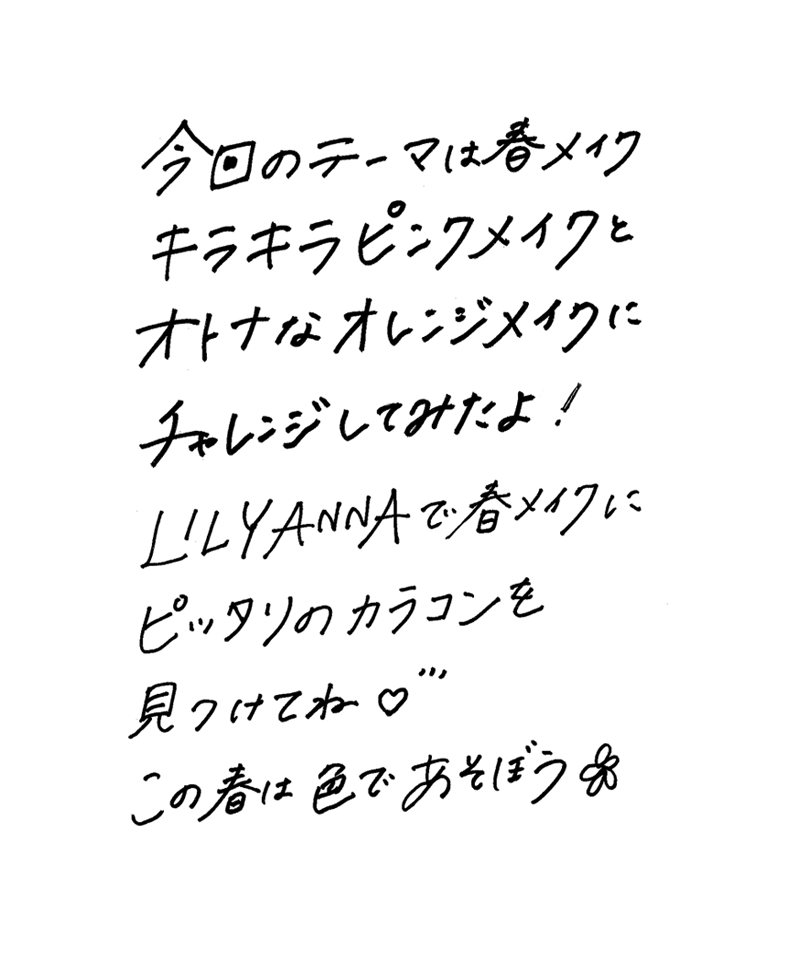 今回のテーマは春メイク
キラキラピンクメイクと
オトナなオレンジメイクに
チャレンジしてみたよ！
LILYANNAで春メイクに
ピッタリのカラコンを
見つけてね♡
この春は色であそぼう